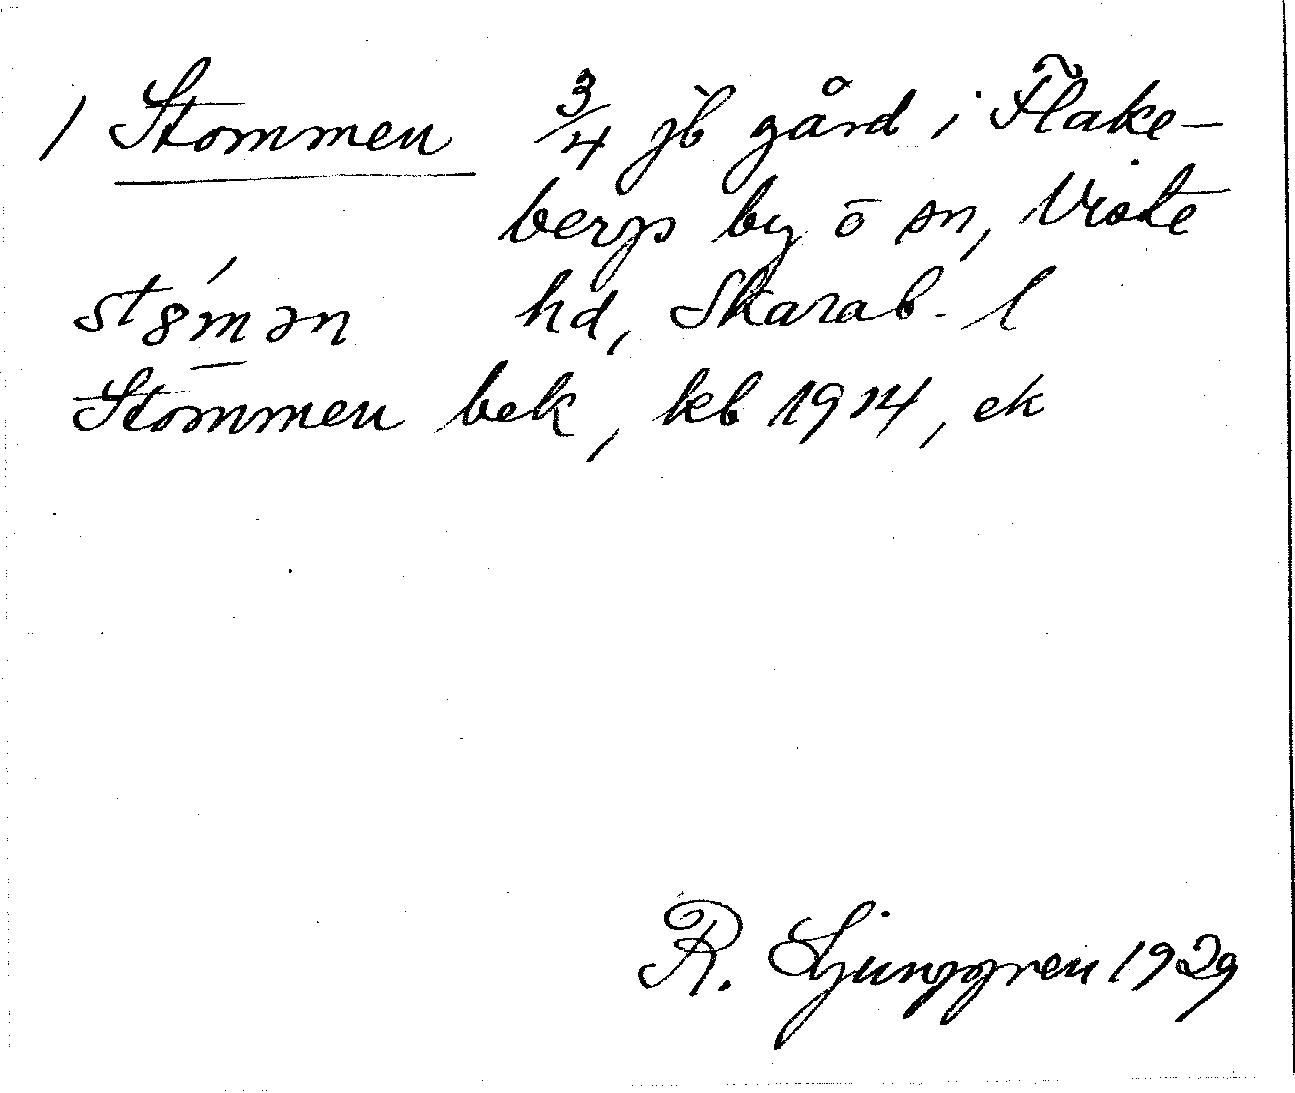 / Stommen 3/4 jb gård i Flake-
bergs by o sn, Viste
st8́m̲ən hd, Skarab. l
Stommen bek, kb 1914, ek
R. Ljunggren 1929